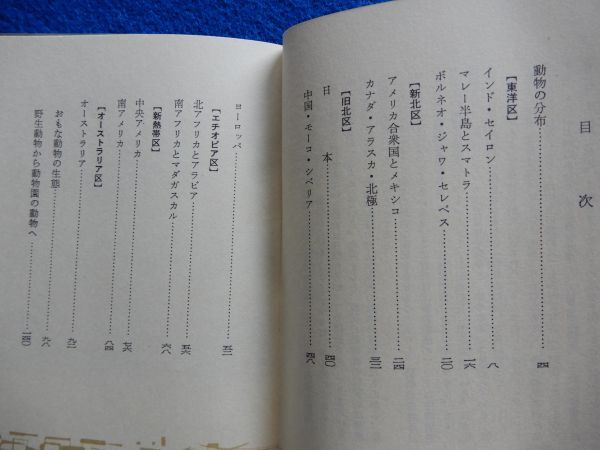 目次
動物の分布………四
【東洋区】
インド・セイロン………八
マレー半島とスマトラ………一六
ボルネオ・ジャワ・セレベス………二〇
【新北区】
アメリカ合衆国とメキシコ………二四
カナダ・アラスカ・北極………三二
【旧北区】
日本………四〇
中国・モーコ・シベリア………四八
ヨーロッパ………五二
【エチオピア区】
北アフリカとアラビア………五六
南アフリカとマダガスカル………六八
【新熱帯区】
中央アメリカ………七六
南アメリカ………八四
【オーストラリア区】
オーストラリア………九二
おもな動物の生態………九八
野生動物から動物園の動物へ………一四〇